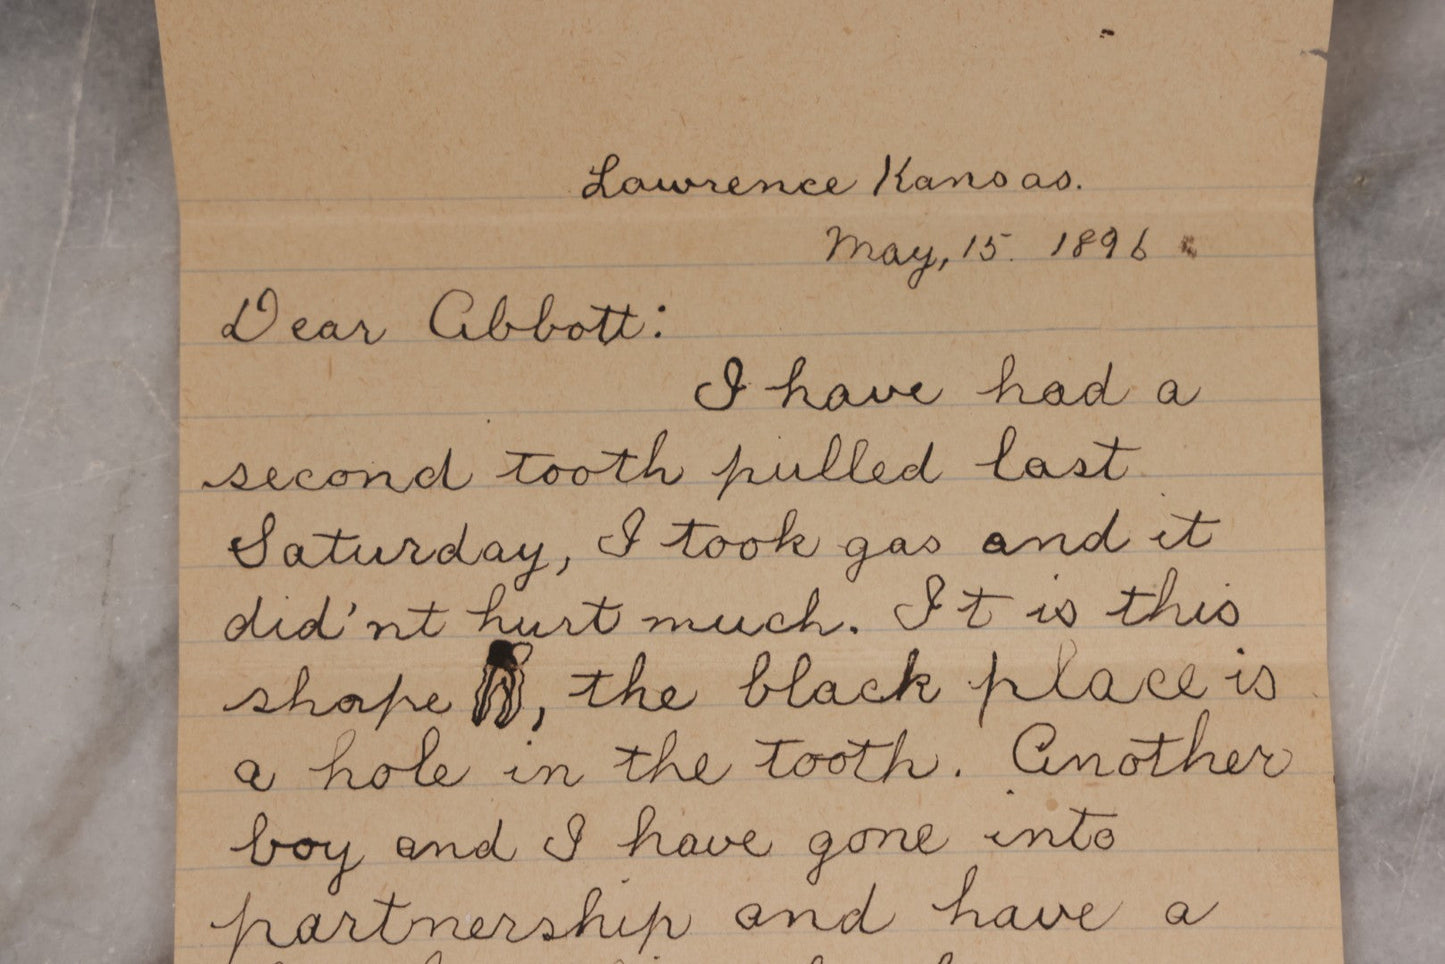 Lawrence Kansas.
May, 15. 1896
Dear Abbott:
I have had a
second tooth pulled last
Saturday, I took gas and it
did'nt hurt much. It is this
shape , the black place is
a hole in the tooth. Another
boy and I have gone into
partnership and have a